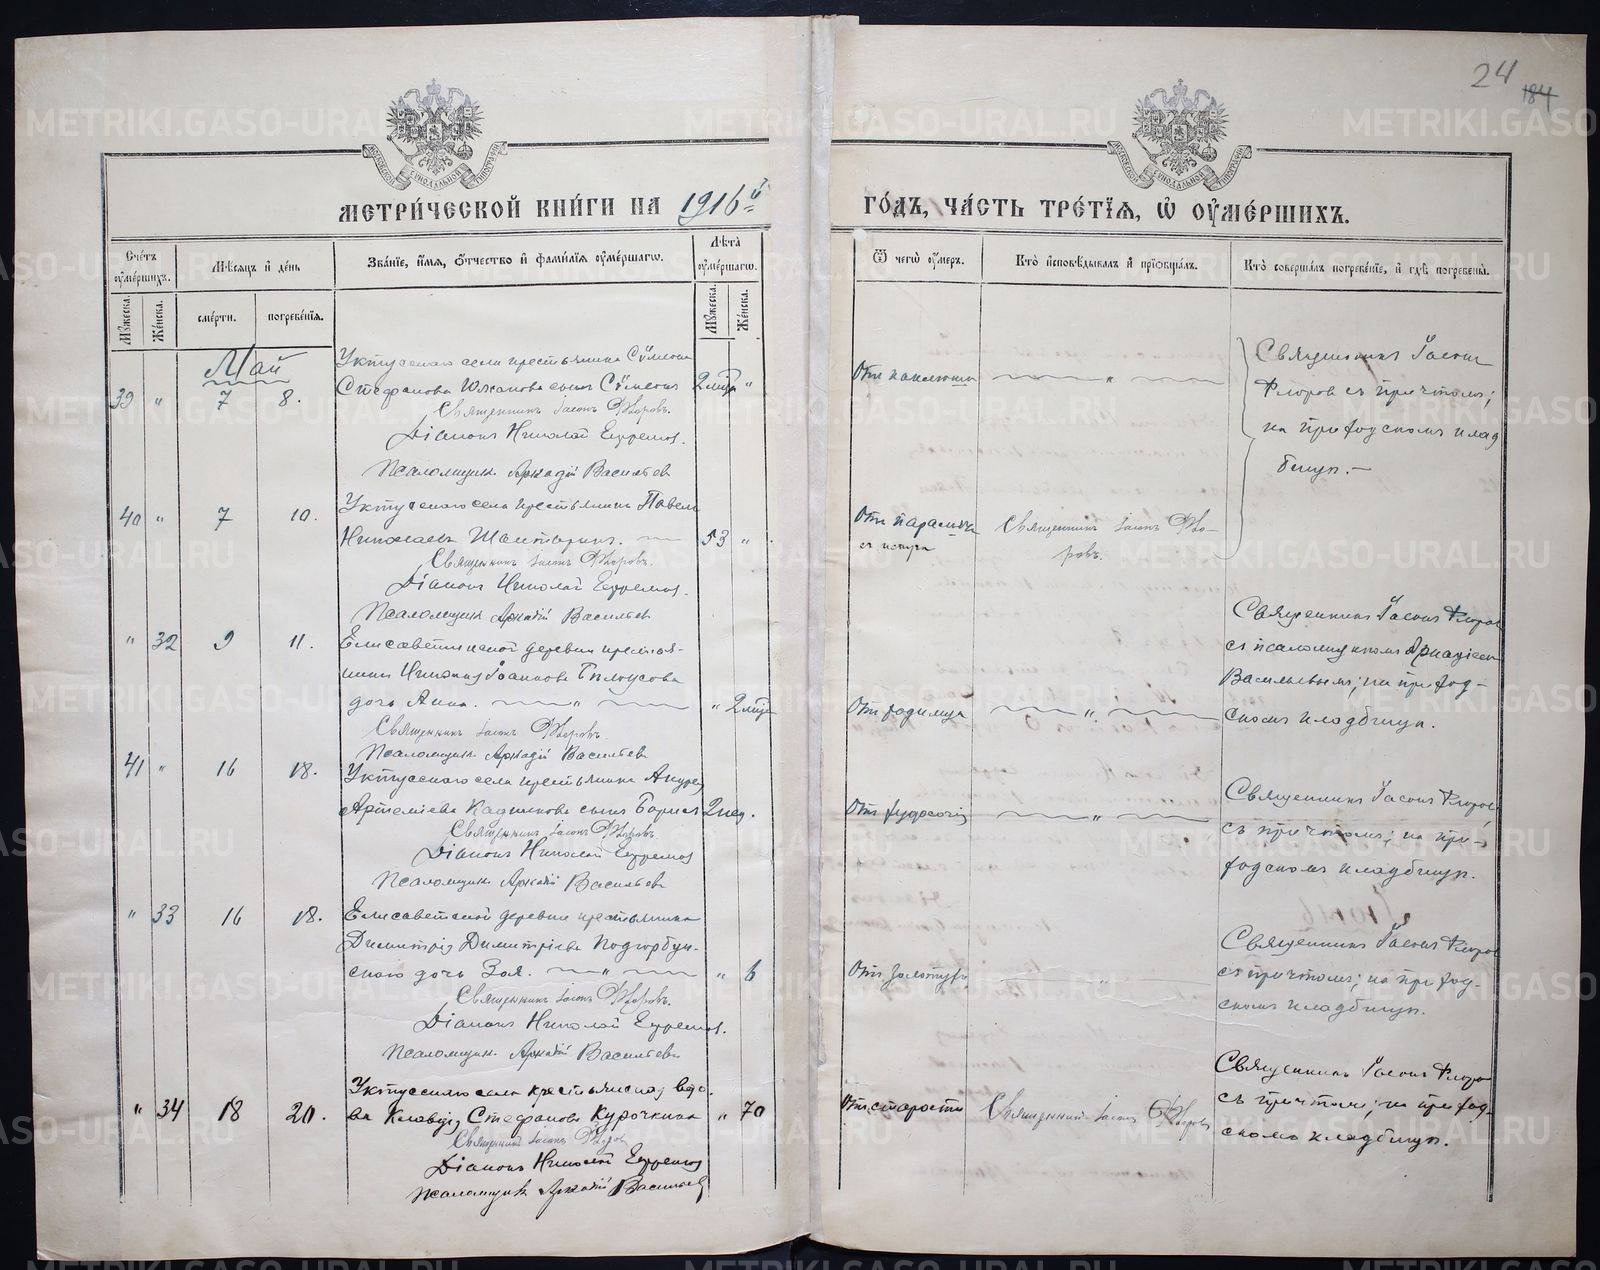 24
184
МЕТРИ́ЧЕСКОЙ КНИ́ГИ НА 1916й
ГО́ДЪ, ЧА́СТЬ ТРЕ́ТІЯ, Ѡ ОУМЕ́РШИХЪ.
Счетъ оумершихъ.
Мѣсяцъ и день
Званіе, имя, отчество и фамилія оумершагѡ.
Лѣта оумершагѡ.
Мужеска.
Женска.
смерти.
погребенія.
Мужеска.
Женска.
Ѿ чегѡ оумеръ.
Кто исповѣдывалъ и пріобщалъ.
Кто совершалъ погребеніе, и гдѣ погребены.
Май
39 " 7 8.
Уктусскаго села крестьянина Сѵмеона
Стефанова сынъ Сѵмеонъ 2 "
Священникъ Іасонъ Флоровъ.
Діаконъ Николай Ефремов.
Псаломщикъ Аркадій Васильев
"
Священникъ Іасонъ
Флоров съ причтомъ;
на приходскомъ клад
бищѣ.
40 " 7 10.
Уктусскаго села крестьянинъ Павелъ
Николаевъ 53 "
Священникъ Іасонъ Флоровъ.
Діаконъ Николай Ефремов.
Псаломщикъ Аркадій Васильев
Отъ паралича
Священникъ Іасонъ Фло-
ровъ.
" 32 9 11.
Елисаветинской деревни крестья-
нина Іоаннова Бѣлоусова
дочь Анна. " " 2 мѣс
Священникъ Іасонъ Флоровъ.
Псаломщикъ Аркадій Васильев
Отъ родимца "
Священникъ Іасонъ Флоров
съ псаломщикомъ Аркадіем
Васильевымъ; на приход-
скомъ кладбищѣ.
41 " 16 18.
Уктусскаго села крестьянина Андрея
Артеміева сынъ Борис 2 нед.
Священникъ Іасонъ Флоровъ.
Діаконъ Николай Ефремов
Псаломщикъ Аркадій Васильев
Отъ худосочія "
Священникъ Іасонъ Флоров
съ причтомъ; на при-
ходскомъ кладбищѣ.
" 33 16 18.
Елисаветской деревни крестьянина
Димитрія Димитріева Подгорбун-
скаго дочь Зоя. " " 6
Священникъ Іасонъ Флоровъ.
Діаконъ Николай Ефремов.
Псаломщикъ Аркадій Васильевъ
Отъ золотухи "
Священникъ Іасонъ Флоров
съ причтомъ; на приход-
скомъ кладбищѣ.
" 34 18 20.
Уктусскаго села крестьянская вдо-
ва Клавдія Стефанова Курочкина " 70
Священникъ Іасонъ Флоров
Діаконъ Николай Ефремов
Псаломщикъ Аркадій Васильев
Отъ старости
Священникъ Іасонъ Флоровъ
Священникъ Іасонъ Флоров
съ причтом; на приход-
скомъ кладбищѣ.
METRIKI.GASO-URAL.RU